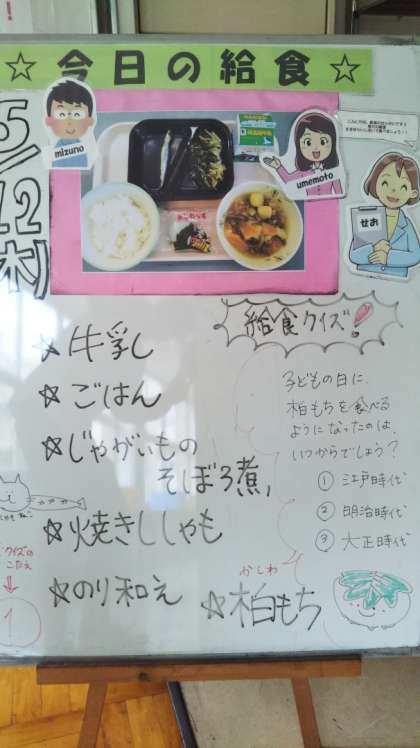 ☆今日の給食☆
5/12(木)
mizuno
umemoto
せお
給食クイズ!
☆牛乳
☆ごはん
☆じゃがいもの
そぼろ煮
☆焼きししゃも
☆のり和え
かしわ
☆柏もち
子どもの日に、
柏もちを食べる
ようになったのは、
いつからでしょう?
① 江戸時代
② 明治時代
③ 大正時代
クイズの
こたえ
↓
1